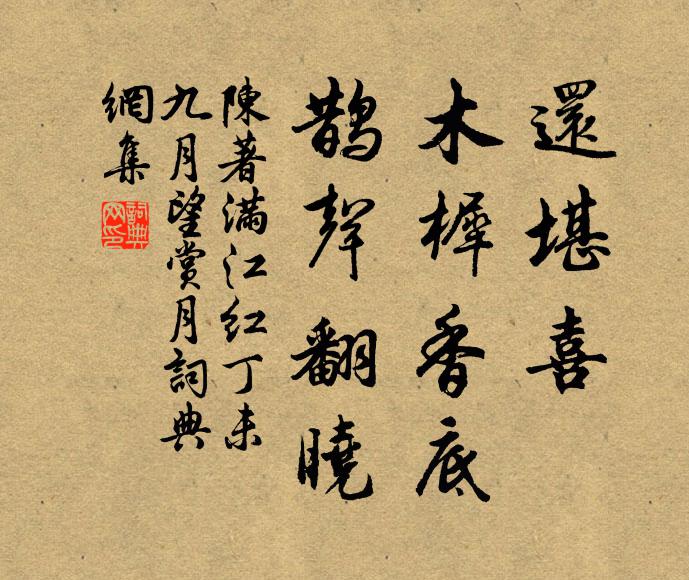 還堪喜
木樨香底
鵲聲翻曉
陳著滿江紅丁未
九月望賞月詞典
網集
詞典
网印